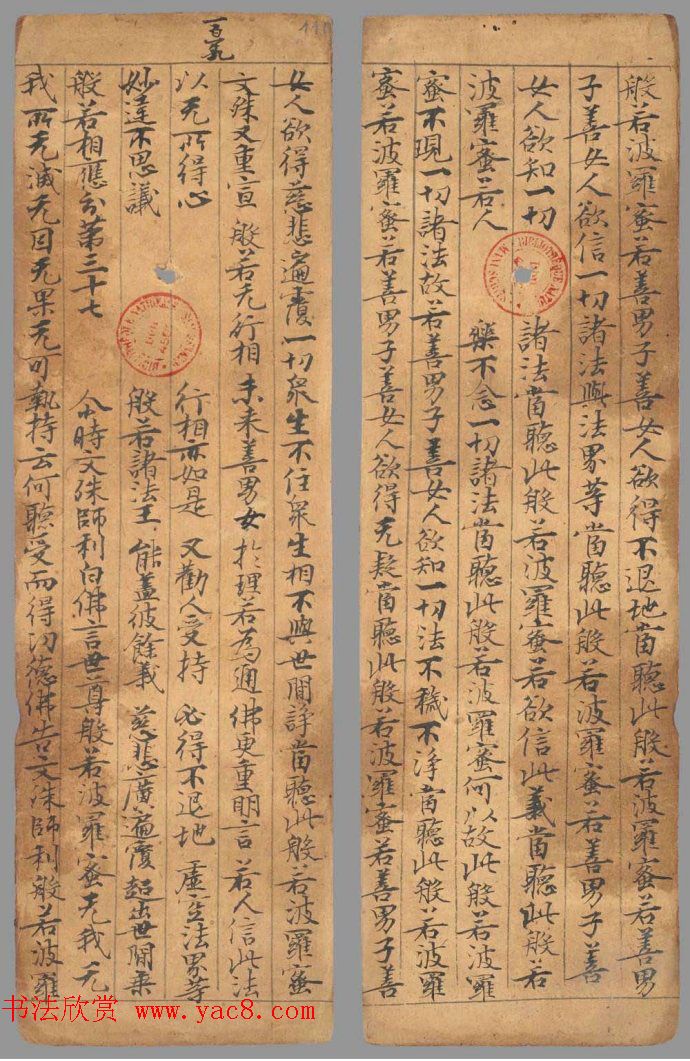 般若波羅蜜若善男子善女人欲得不退地當聽此般若波羅蜜若善男
子善女人欲信一切諸法與法界等當聽此般若波羅蜜若善男子善
女人欲知一切 諸法當聽此般若波羅蜜若欲信此義當聽此般若
波羅蜜若人 樂不念一切諸法當聽此般若波羅蜜何以故此般若波羅
蜜不現一切諸法故若善男子善女人欲知一切法不穢不淨當聽此般若波羅
蜜若波羅蜜若善男子善女人欲得无疑當聽此般若波羅蜜若善男子善
女人欲得慈悲遍覆一切衆生不住衆生相不與世間諍當聽此般若波羅蜜
文殊又重宣 般若无行相 未來善男女 於理若為通 佛更重明言 若人信此法
以无所得心 行相亦如是 又勸人受持 必得不退地 虛空法界等
妙達不思議 般若諸法王 能蓋彼餘義 慈悲廣遍覆 超出世間乘
般若相應分第三十七 尒時文殊師利白佛言世尊般若波羅蜜无我无
我所无滅无因无果无可執持云何聽受而得功德佛告文殊師利般若波羅
书法欣赏 www.yac8.com